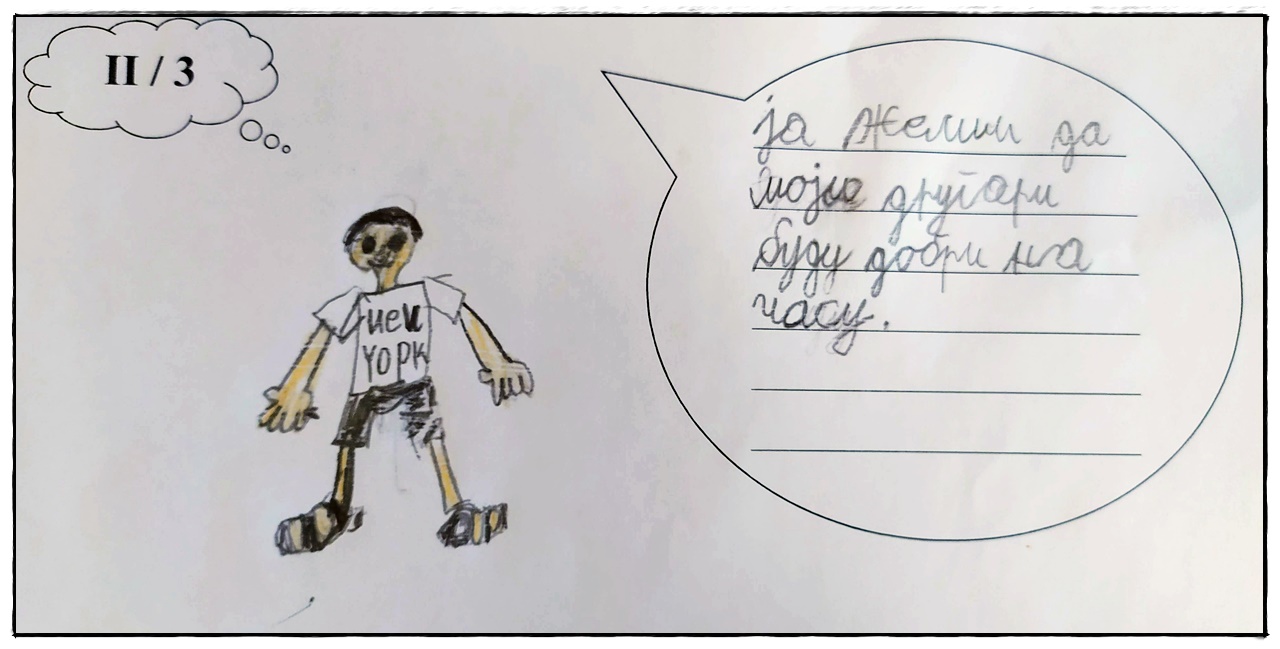 II / 3
ја желим да
моји другари
буду добри на
часу.
new
YORK